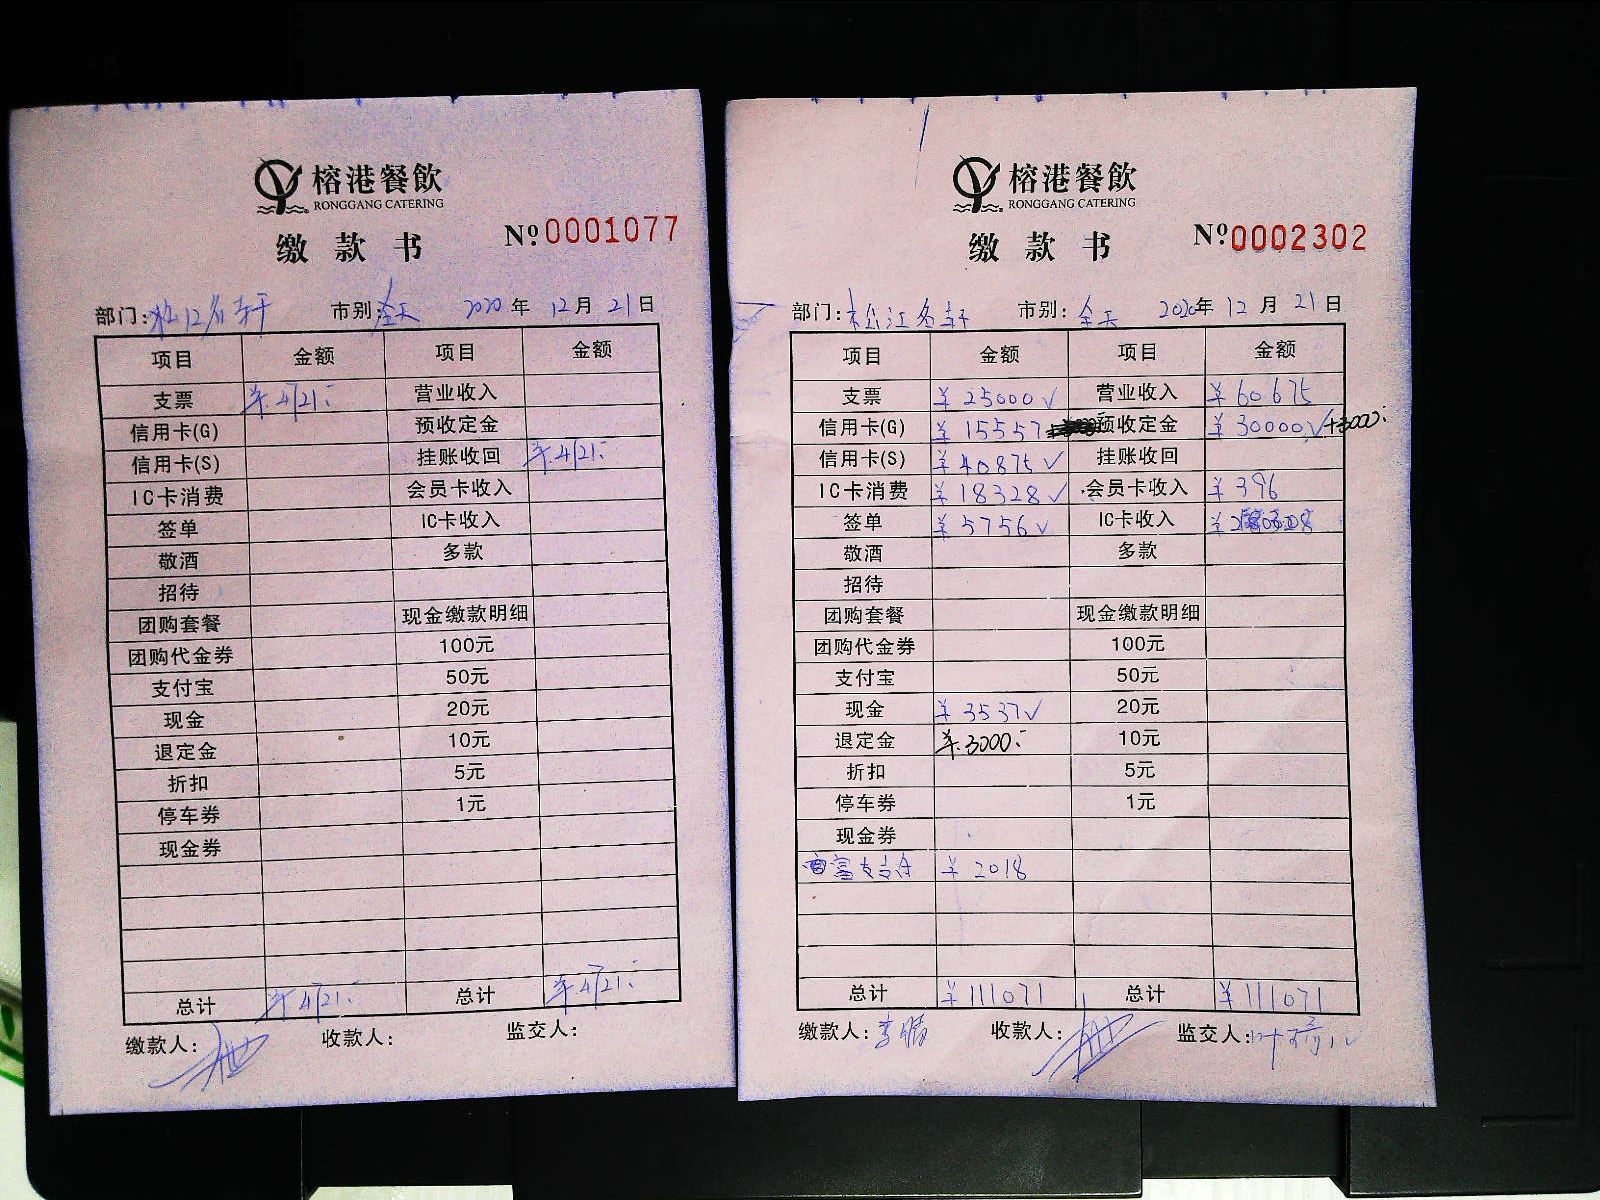 榕港餐飲
RONGGANG CATERING
缴款书 Nº 0001077
部门: 松江名轩 市别: 全天 2020年12月21日
项目 金额 项目 金额
支票 ¥4121:- 营业收入
信用卡(G) 预收定金
信用卡(S) 挂账收回 ¥4121:-
IC卡消费 会员卡收入
签单 IC卡收入
敬酒 多款
招待
团购套餐 现金缴款明细
团购代金券 100元
支付宝 50元
现金 20元
退定金 10元
折扣 5元
停车券 1元
现金券
总计 ¥4121:- 总计 ¥4121:-
缴款人: 收款人: 监交人:
榕港餐飲
RONGGANG CATERING
缴款书 Nº 0002302
部门: 松江名轩 市别: 全天 2020年12月21日
项目 金额 项目 金额
支票 ¥25000✓ 营业收入 ¥60675
信用卡(G) ¥15557 预收定金 ¥30000✓+3000:-
信用卡(S) ¥40875✓ 挂账收回
IC卡消费 ¥18328✓ 会员卡收入 ¥396
签单 ¥5756✓ IC卡收入
敬酒 多款
招待
团购套餐 现金缴款明细
团购代金券 100元
支付宝 50元
现金 ¥3537✓ 20元
退定金 ¥3000:- 10元
折扣 5元
停车券 1元
现金券
支付 ¥2018
总计 ¥111071 总计 ¥111071
缴款人: 李 收款人: 监交人: 叶